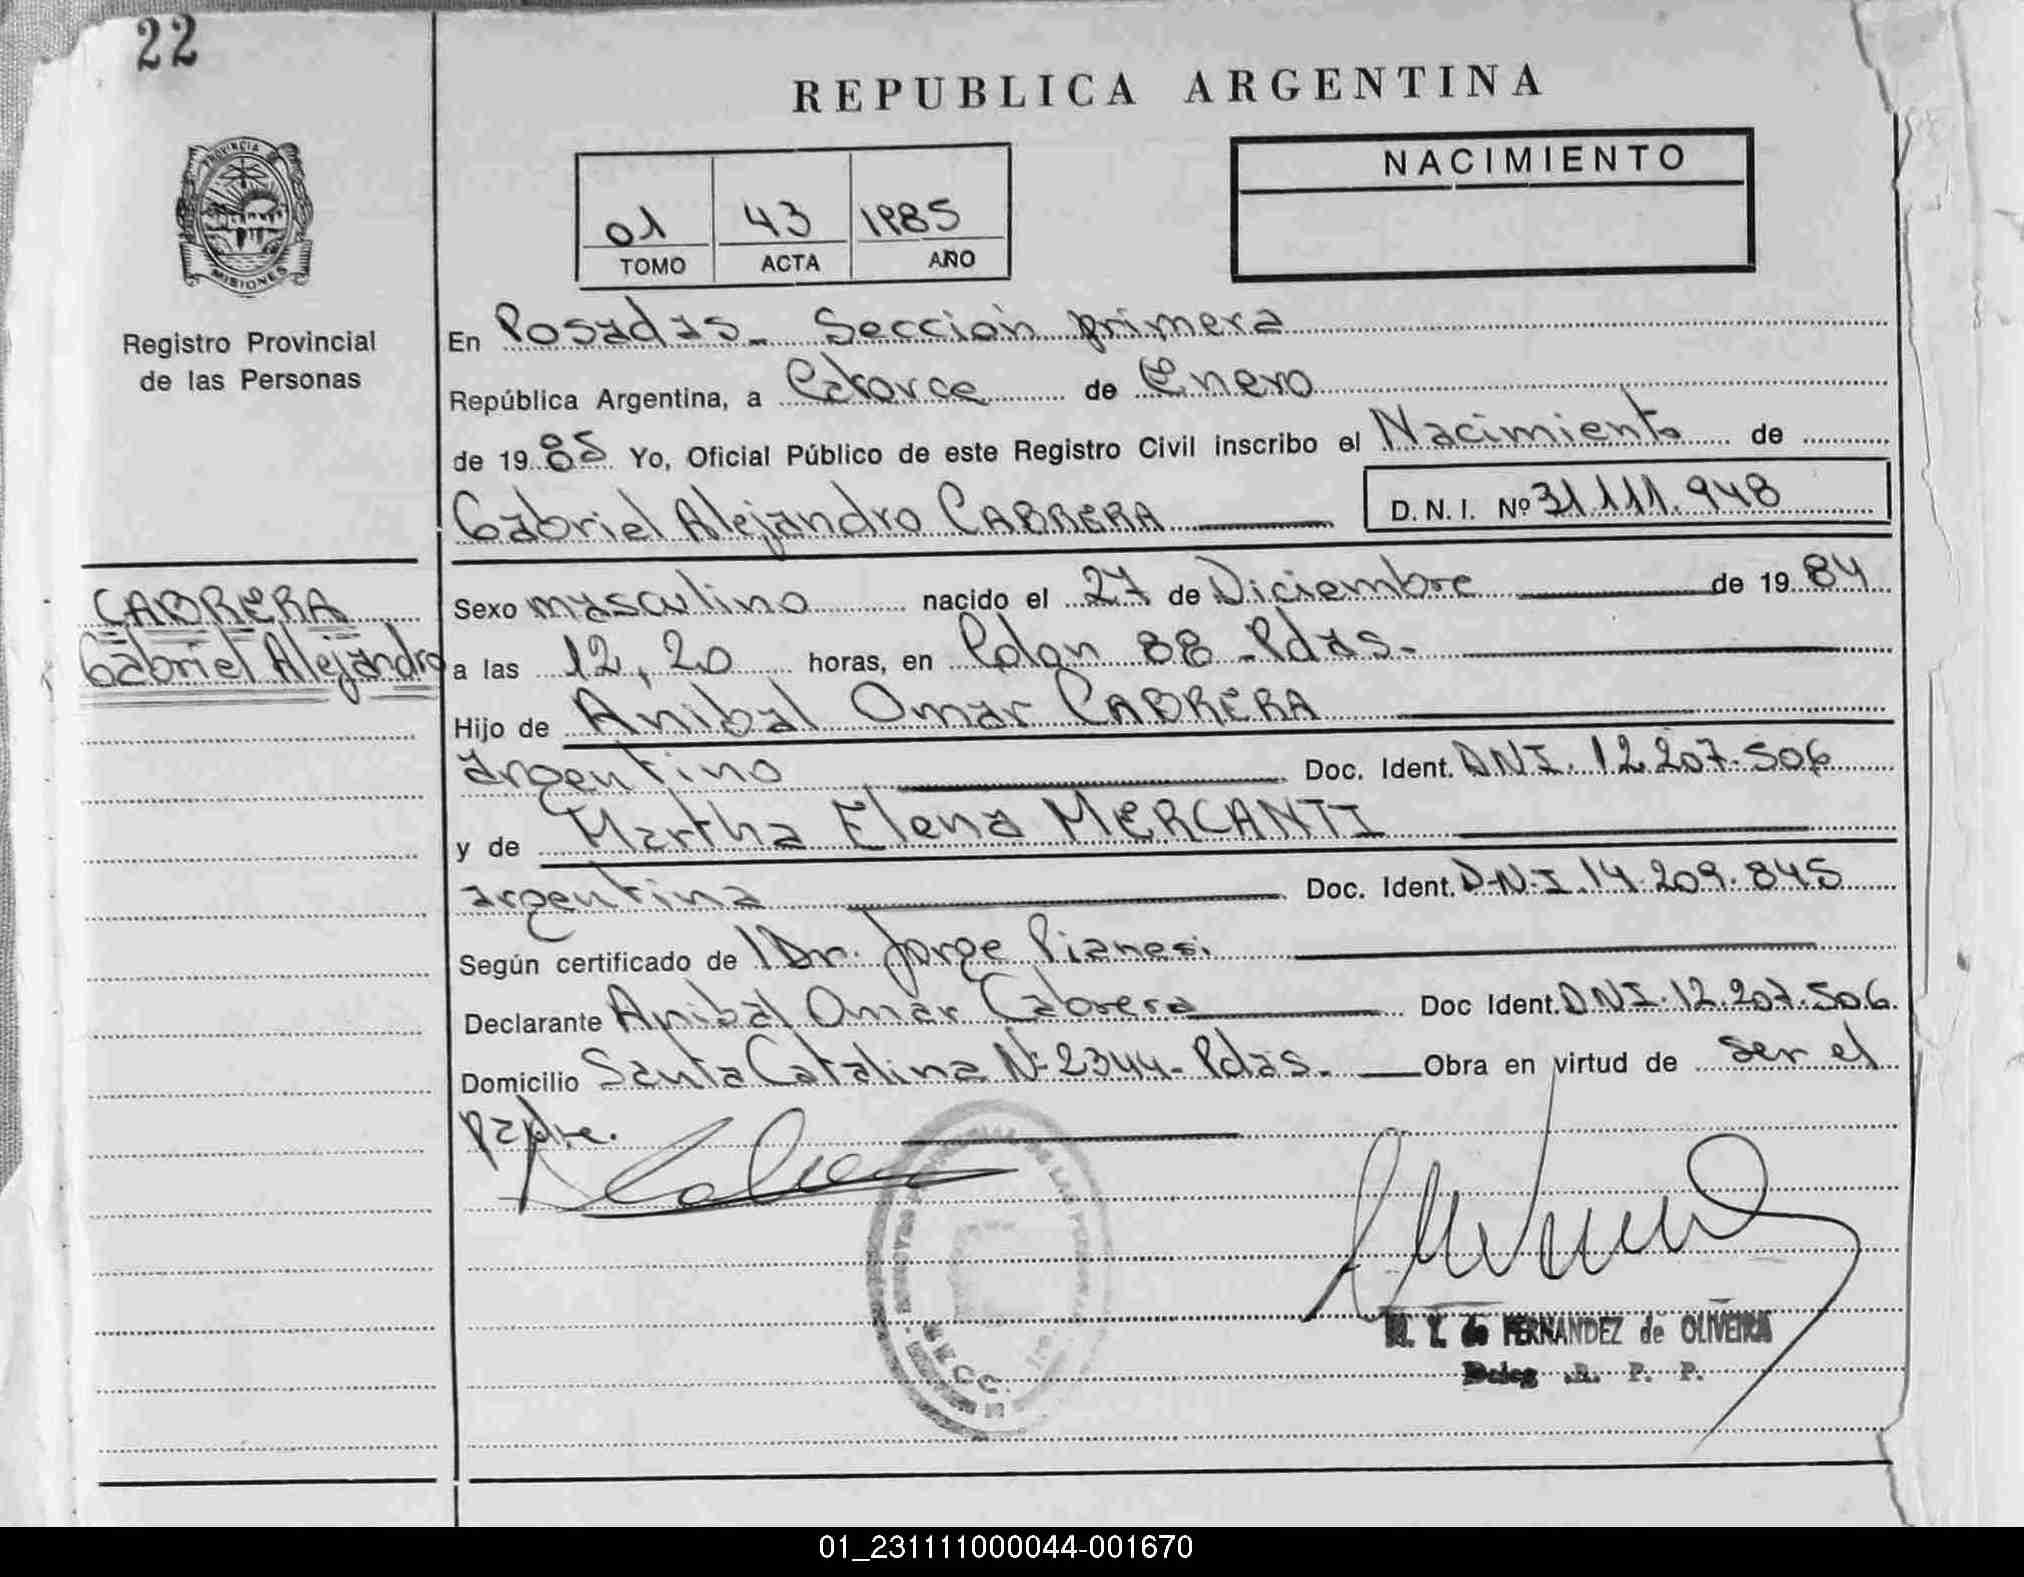 22
REPUBLICA ARGENTINA
PROVINCIA DE
MISIONES
Registro Provincial
de las Personas
01 43 1985
TOMO ACTA AÑO
NACIMIENTO
En Posadas - Sección primera
República Argentina, a Catorce de Enero
de 1985 Yo, Oficial Público de este Registro Civil inscribo el Nacimiento de
Gabriel Alejandro CABRERA D.N.I. Nº 31.111.948
CABRERA
Gabriel Alejandro
Sexo masculino nacido el 27 de Diciembre de 1984
a las 12,20 horas, en Colon 88 - Pdas.-
Hijo de Anibal Omar CABRERA
argentino Doc. Ident. DNI. 12.207.506
y de Martha Elena MERCANTI
argentina Doc. Ident. D.N.I. 14.209.845
Según certificado de Dr. Jorge Pianesi
Declarante Anibal Omar Cabrera Doc Ident. DNI. 12.207.506.
Domicilio Santa Catalina Nº 2344 - Pdas. - Obra en virtud de ser el
padre.
FERNANDEZ de OLIVEIRA
Deleg. R. P. P.
01_231111000044-001670